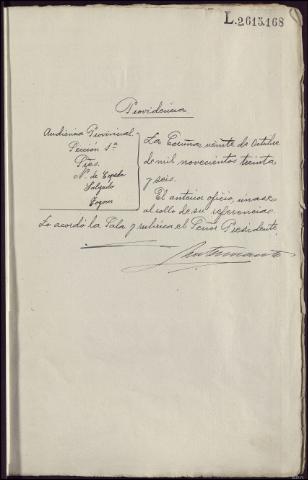 L.2615.168
Providencia
Audiencia Provincial
Sección 1ª
Ptes.
Salgado
La Coruña veinte de Octubre
de mil novecientos treinta
y seis.
El anterior oficio, unase
al rollo de su referencia.
Lo acordó la Sala y rubrica el Señor Presidente